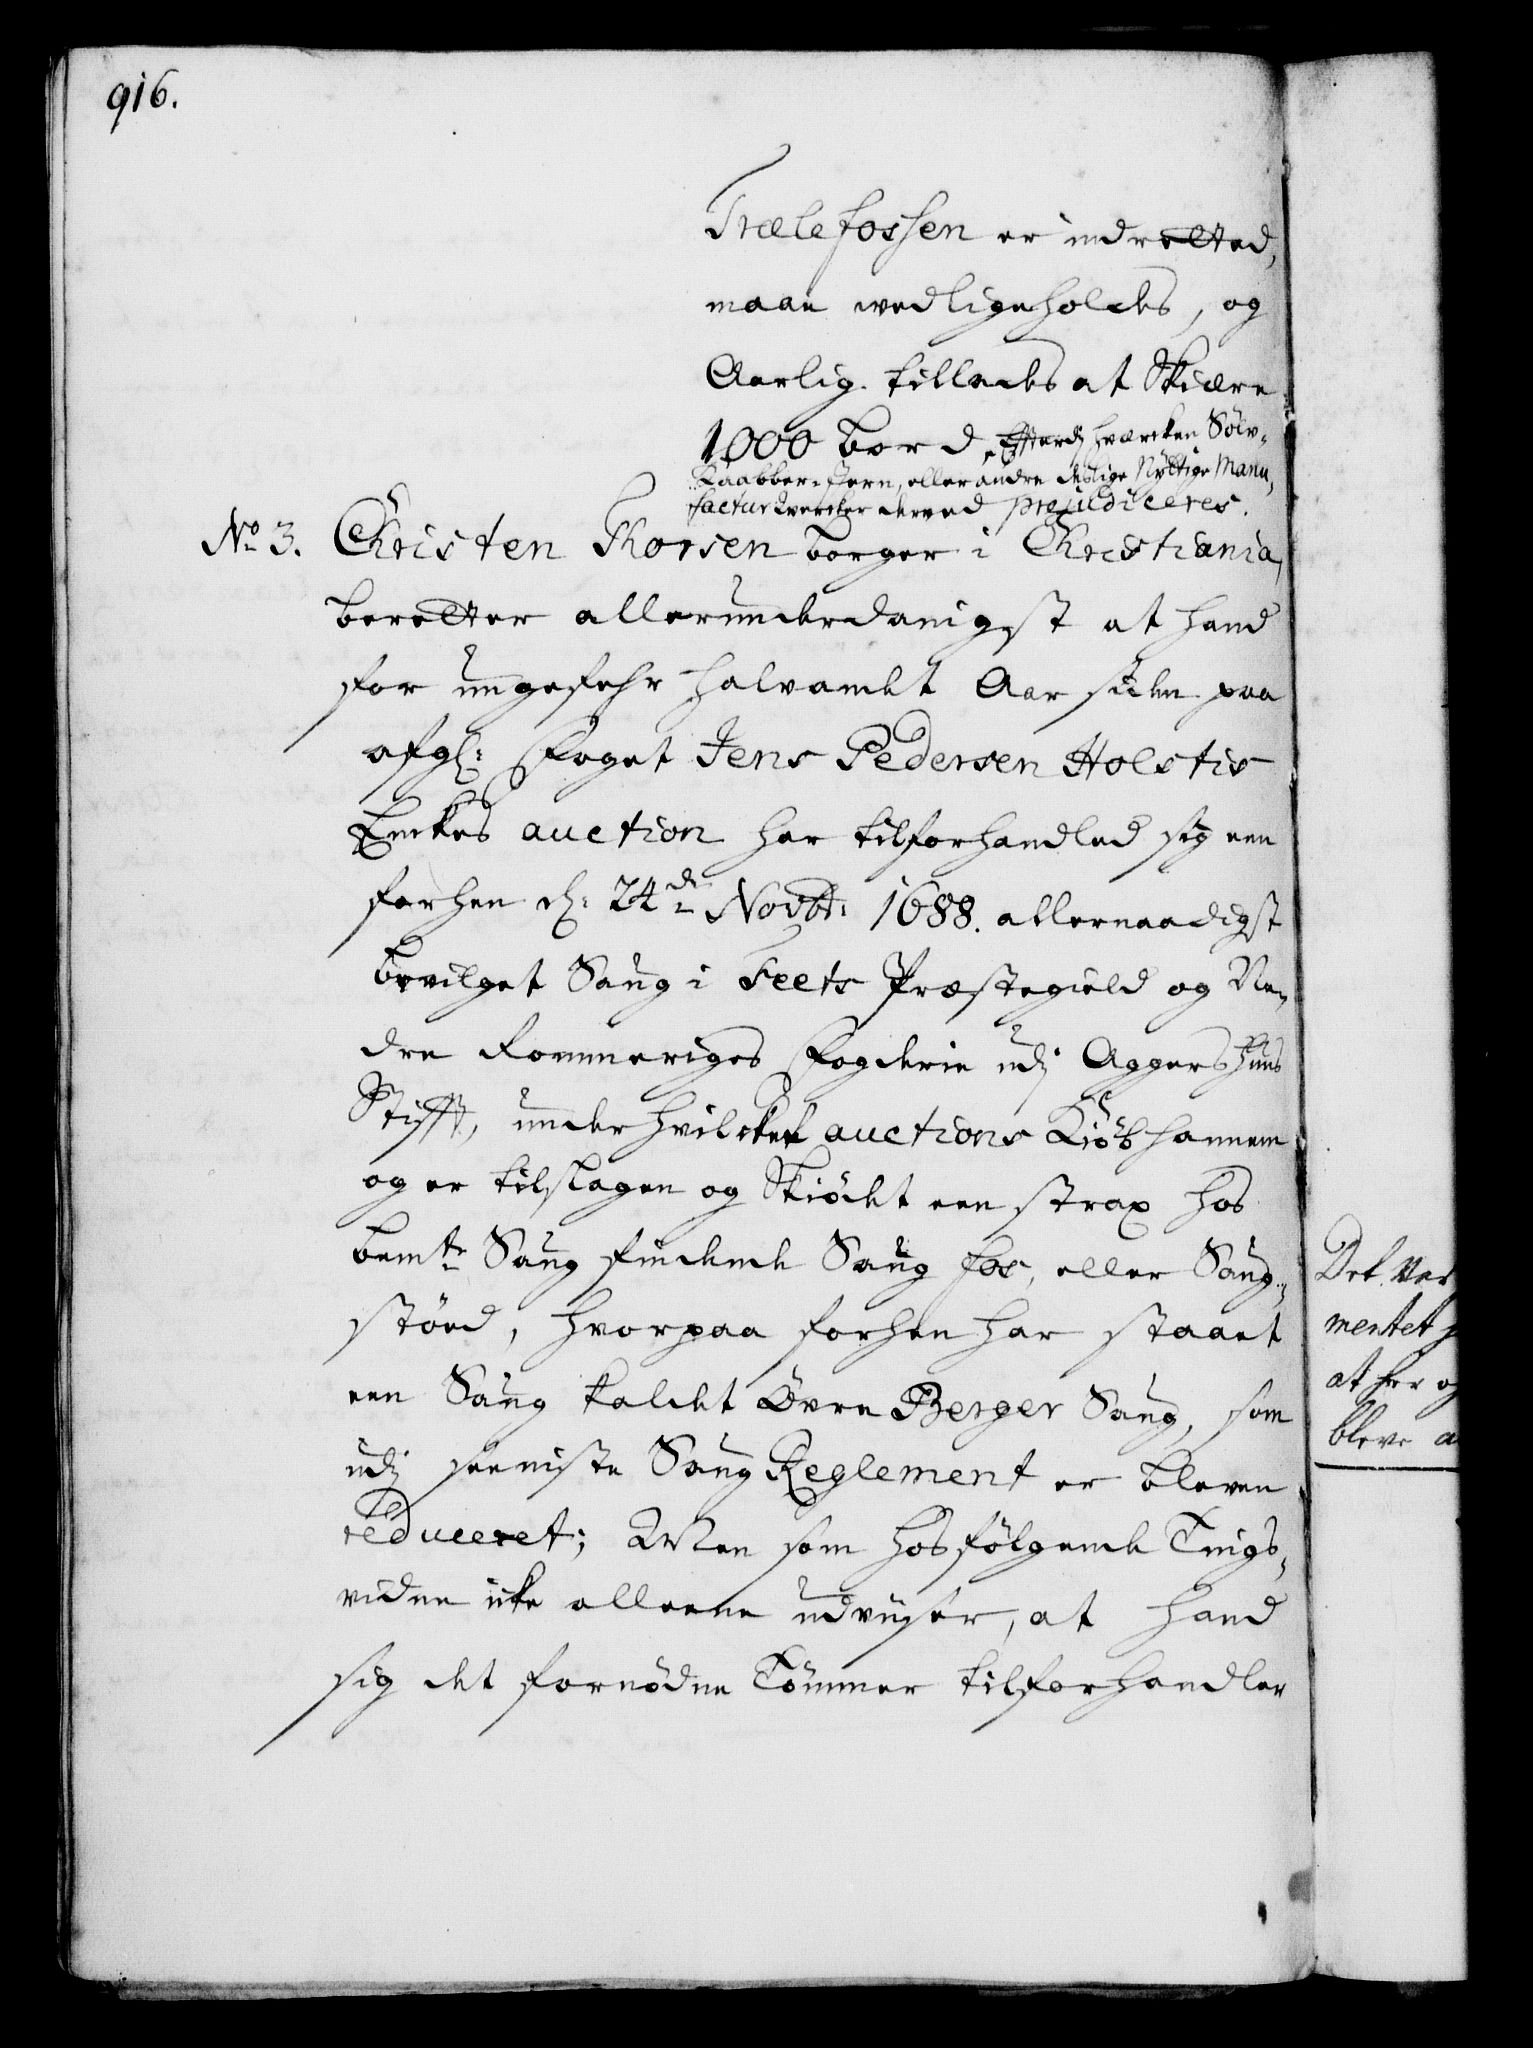 916.
Trælefossen er indretted,
maae wedligeholdes, og
Aarlig tillades at Skiære
1000 bord, efterdj hwercken Sölv-
Kaabber- Jern, eller andre deslige Nyttige Manu-
factur Wercker derved præjudiceres.
No. 3. Christen Thorsen borger i Christiania,
beretter allerunderdanigst at hand
for ungefehr halvandet Aar siden paa
afgl: Foget Jens Pedersen Holstis
Enckes auction har tilforhandled sig een
forhen d: 24de Novbr: 1688. allernaadigst
bevilget Saug i Feets Præstegield og Ne-
dre Rommeriges Fogderie udj Aggershuus
Stifft, under hvilcket auctions Kiöb hannem
og er tilslagen og Skiödet een strax hos
bemte Saug findende Saug fos, eller Saug-
stöed, hvorpaa forhen har staaet
een Saug kaldet Övre Berger Saug, som
udj seeniste Saug Reglement er bleven
reduceret; Men som hosfölgende Tings-
vidne icke alleene udviiser, at hand
sig det fornödne Tömmer tilforhandler
Det. Ved
mentet
at her og
bleve a